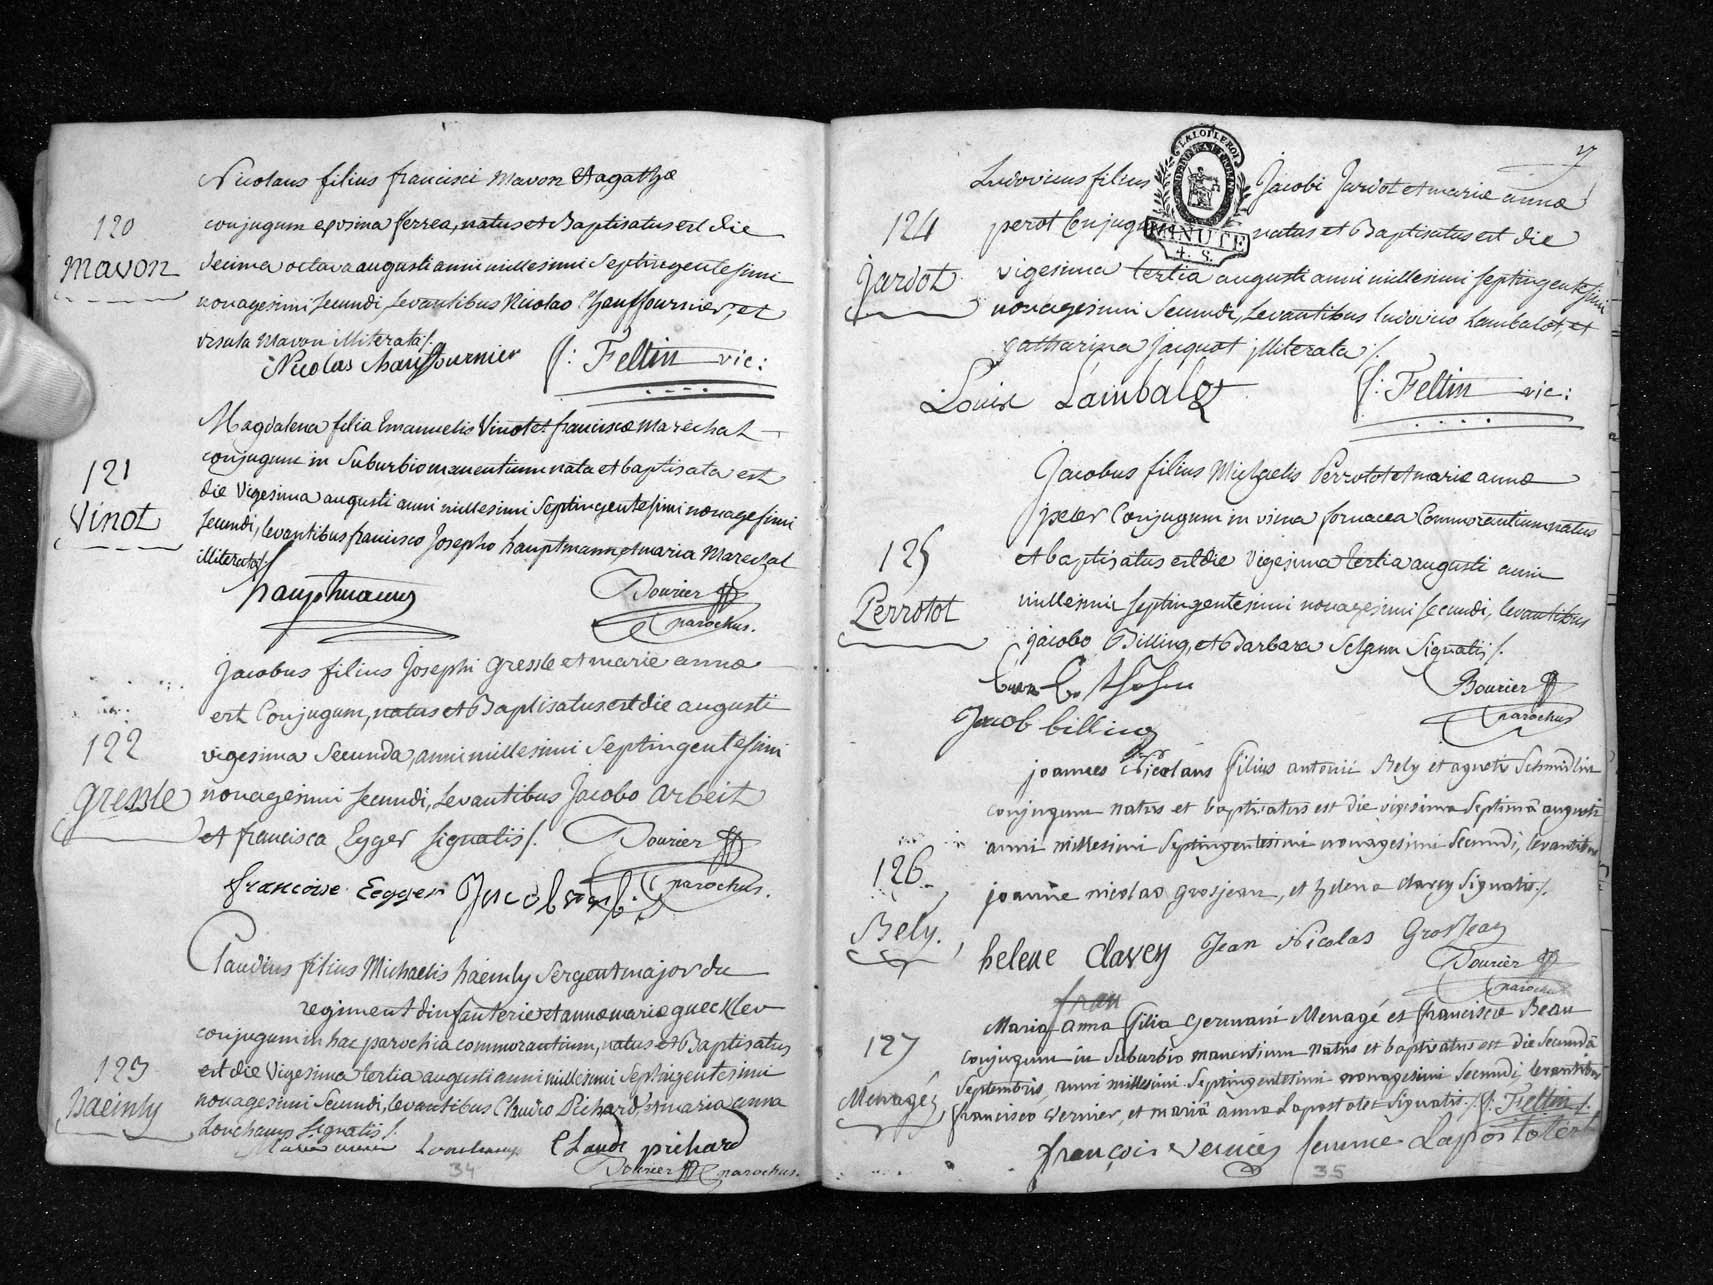 Nicolaus filius francisci Mavon et agathæ
conjugum ex vicina ferrea, natus et Baptisatus est die
120
Mavon
decima octava augusti anni millesimi Septingentesimi
nonagesimi secundi, Levantibus Nicolao Chauffournier, et
ursula Mavon illiterata /.
Nicolas chauffournier f: Feltin vic:
Magdalena filia Emanuelis Vinot et franciscæ Marechal
conjugum in Suburbio manentium nata et baptisata est
121
Vinot
die Vigesima augusti anni millesimi Septingentesimi nonagesimi
secundi, levantibus francisco Josepho hauptmann, et maria Marechal
illiterata /.
hauptmann Bourier parochus.
Jacobus filius Josephi Gressle et mariæ annæ
ert Conjugum, natus et Baptisatus est die augusti
122
Gressle
vigesima Secunda, anni millesimi Septingentesimi
nonagesimi secundi, Levantibus Jacobo arbeit
et francisca Egger signatis /. Bourier parochus.
francoise Eegger Jacob
Claudius filius Michaelis haeinly Sergent major du
regiment dinfanterie et annæ mariæ queckler
conjugum in hac parochia commorantium, natus et Baptisatus
123
haeinly
est die Vigesima tertia augusti anni millesimi Septingentesimi
nonagesimi Secundi, levantibus Claudio Pichard et maria anna
Lonchamp Signatis /.
Marie anne Lonchamp Claude pichard
Bourier parochus.
34
LA LOI LE ROI
MINUTE
4. S.
Ludovicus filius Jacobi Jardot et mariæ annæ
124
Jardot
perot Conjugum natus et Baptisatus est die
vigesima tertia augusti anni millesimi septingentesimi
nonagesimi Secundi, Levantibus ludovico Lambalot, et
catharina Jacquot illiterata /.
Louis Lambalot f: Feltin vic:
Jacobus filius Michaelis Perrotot et mariæ annæ
peter Conjugum in vicina fornacea Commorantium natus
125
Perrotot
et baptisatus est die Vigesima tertia augusti anni
millesimi septingentesimi nonagesimi secundi, levantibus
jacobo Billing, et Barbara Selgun Signatis /.
Bourier parochus
Jacob billing
joannes Nicolaus filius antonii Bely et agnetis Schmidlin
conjugum natus et baptisatus est die vigesima Septimâ augusti
126
Bely.
anni millesimi Septingentesimi nonagesimi Secundi, levantibus
joanne nicolao grosjean, et helena clavey signatis. /.
helene clavey Jean Nicolas Grosjean
Bourier parochus
fran
Maria anna filia Germani Menagé et franciscæ Beau
127
Menagé
conjugum in Suburbio manentium natus et baptisatus est die Secundâ
Septembris, anni millesimi Septingentesimi nonagesimi Secundi, levantibus
francisco Vernier, et mariâ annâ Lapostolet signatis. /. f: Feltin /.
françois vernier femme Lapostolet
35